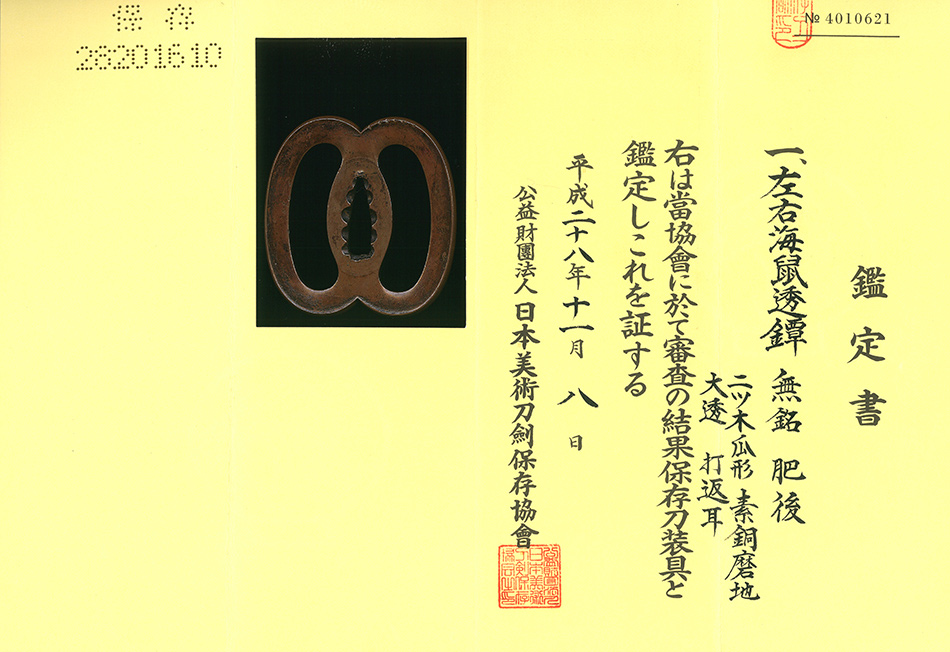 № 4010621
鑑定書
一、左右海鼠透鐔 無銘 肥後
二ツ木瓜形 素銅磨地
大透 打返耳
右は當協會に於て審査の結果保存刀装具と
鑑定しこれを証する
平成二十八年十一月八日
公益財團法人 日本美術刀劍保存協會
保存
28201610